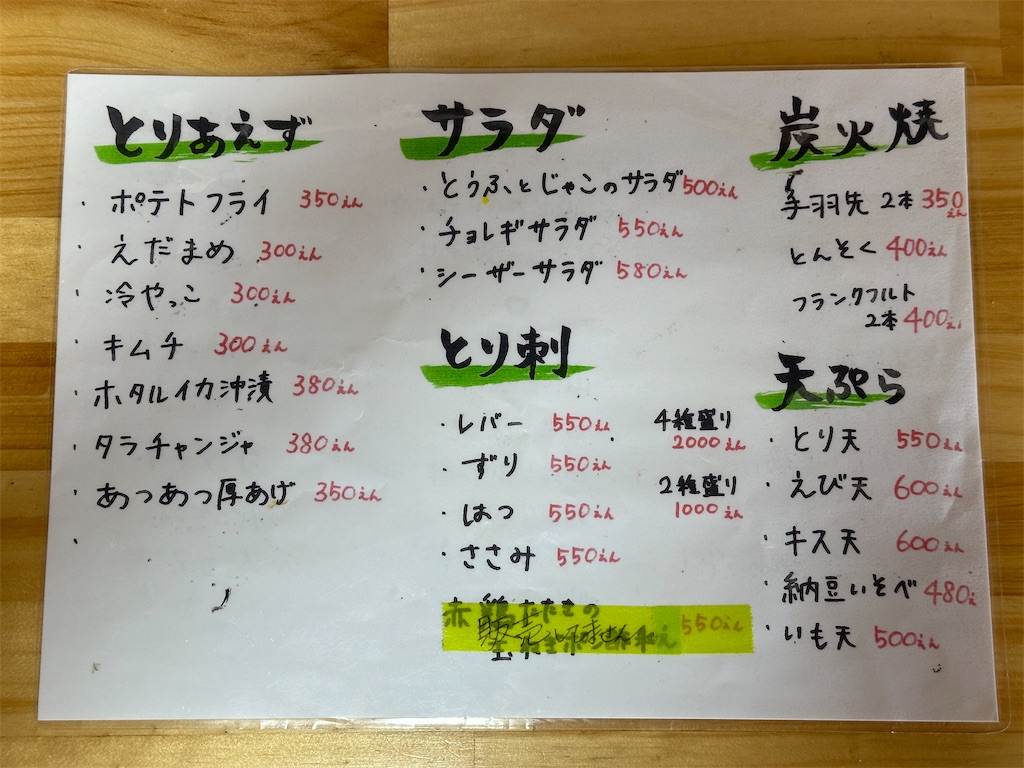 とりあえず
・ポテトフライ 350えん
・えだまめ 300えん
・冷やっこ 300えん
・キムチ 300えん
・ホタルイカ沖漬 380えん
・タラチャンジャ 380えん
・あつあつ厚あげ 350えん
・
サラダ
・とうふとじゃこのサラダ 500えん
・チョレギサラダ 550えん
・シーザーサラダ 580えん
とり刺
・レバー 550えん
・ずり 550えん
・はつ 550えん
・ささみ 550えん
4種盛り
2000えん
2種盛り
1000えん
赤鶏たたきの
550えん
炭火焼
手羽先 2本 350えん
とんそく 400えん
フランクフルト
2本 400えん
天ぷら
・とり天 550えん
・えび天 600えん
・キス天 600えん
・納豆いそべ 480え
・いも天 500えん